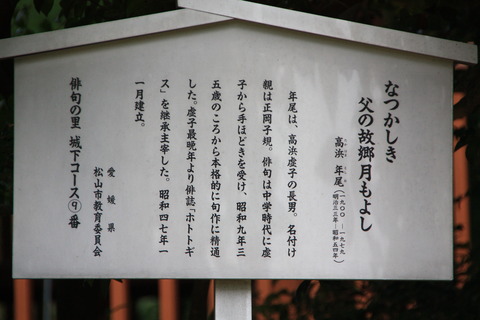 なつかしき
父の故郷月もよし
高浜 年尾(一九〇〇―一九七九 明治三三年―昭和五四年)
年尾は、高浜虚子の長男。名付け
親は正岡子規。俳句は中学時代に虚
子から手ほどきを受け、昭和九年三
五歳のころから本格的に句作に精通
した。虚子最晩年より俳誌「ホトトギ
ス」を継承主宰した。昭和四七年一
一月建立。
愛媛県
松山市教育委員会
俳句の里 城下コース⑨番